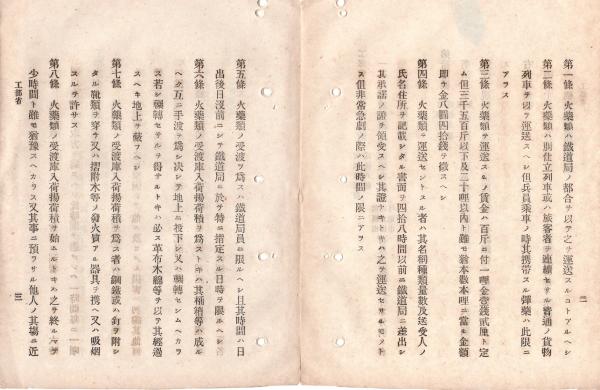 二
第一條 火藥類ハ鐵道局ノ都合ヲ以テ之ヲ運送スルコトアルヘシ
第二條 火藥類ハ別仕立列車或ハ旅客車ヲ連續セサル普通ノ貨物
列車ヲ以テ運送スヘシ但兵員乘車ノ時其携帶スル彈藥ハ此限ニ
アラス
第三條 火藥類ヲ運送スルノ賃金ハ百斤ニ付一哩金壹錢貳厘ト定
ム但三千五百斤以下及二十哩以内ト雖モ
即チ金八圓四拾錢ヲ徵スヘシ
第四條 火藥類ヲ運送セントスル者ハ其名稱種類量數及送受人ノ
氏名住所ヲ記載シタル書面ヲ四拾八時間以前ニ鐵道局ニ差出シ
其承諾ノ證ヲ領受スヘシ其證ナキトキハ之ヲ運送セサルモノト
ス但非常急劇ノ際ハ此時間ノ限ニアラス
第五條 火藥類ノ受渡ヲ爲スハ鐵道局員ニ限ルヘシ且其時間ハ日
出後日沒前ニシテ鐵道局ニ於テ特ニ指定スル日時ヲ限ルヘシ
第六條 火藥類ノ受渡庫入荷揚荷積ヲ爲ストキハ其桶箱等ハ成ル
ヘク互ニ手渡ヲ爲シ決シテ地上ニ投下シ又ハ輾轉セシムヘカラ
ス若シ輾轉セサルヲ得サルトキハ必ス革布木綿等ヲ以テ其經過
スヘキ地上ヲ蔽フヘシ
第七條 火藥類ノ受渡庫入荷揚荷積ヲ爲ス者ハ鋼鐵或ハ釘ヲ附シ
タル靴類ヲ穿チ又ハ摺附木等ノ發火質アル器具ヲ携ヘ又ハ吸烟
スルヲ許サス
第八條 火藥類ノ受渡庫入荷揚荷積ヲ始ムルトキハ之ヲ終ルマテ
少時間ト雖モ猶豫スヘカラス又其事ニ預ラサル他人ノ其場ニ近
工部省
三